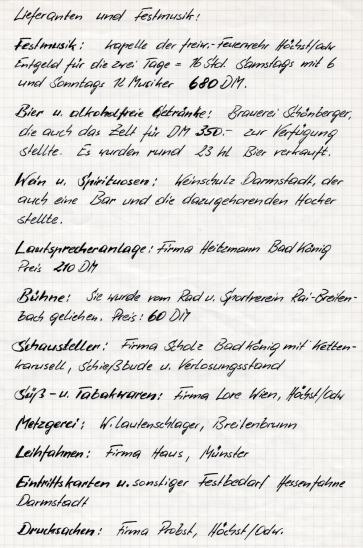 Lieferanten und Festmusik:
Festmusik: Kapelle der freiw.-Feuerwehr Höchst/Odw
Entgeld für die zwei Tage = 16 Std. Samstags mit 6
und Sonntags 12 Musiker 680 DM.
Bier u. alkoholfreie Getränke: Brauerei Schönberger,
die auch das Zelt für DM 350.- zur Verfügung
stellte. Es wurden rund 23 hl Bier verkauft.
Wein u. Spirituosen: Weinschulz Darmstadt, der
auch eine Bar und die dazugehörenden Hocker
stellte.
Lautsprecheranlage: Firma Heitzmann Bad König
Preis 210 DM
Bühne: Sie wurde vom Rad u. Sportverein Rai-Breiten-
bach geliehen. Preis: 60 DM
Schausteller: Firma Scholz Bad König mit Ketten-
karusell, Schießbude u. Verlosungsstand
Süß- u. Tabakwaren: Firma Lore Wien, Höchst/Odw
Metzgerei: W. Lautenschlager, Breitenbrunn
Leihfahnen: Firma Haus, Münster
Eintrittskarten u. sonstiger Festbedarf Hessenfahne
Darmstadt
Drucksachen: Firma Probst, Höchst/Odw.